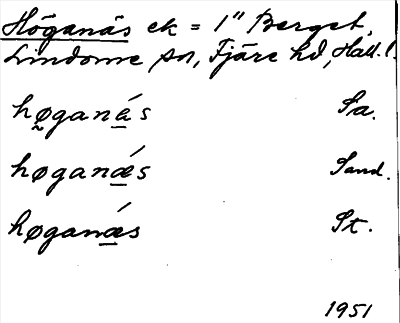 Höganäs ek = 1" Berget,
Lindome sn, Fjäre hd, Hall. l.
høganá̱s Sa.
høganǽ̱s Sand.
høganǽ̱s St.
1951